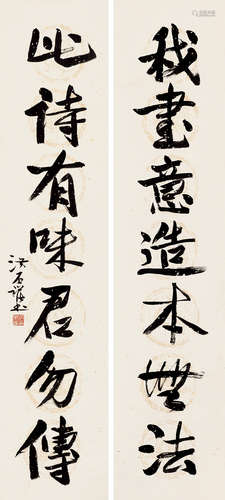 我書意造本無法
此詩有味君勿傳